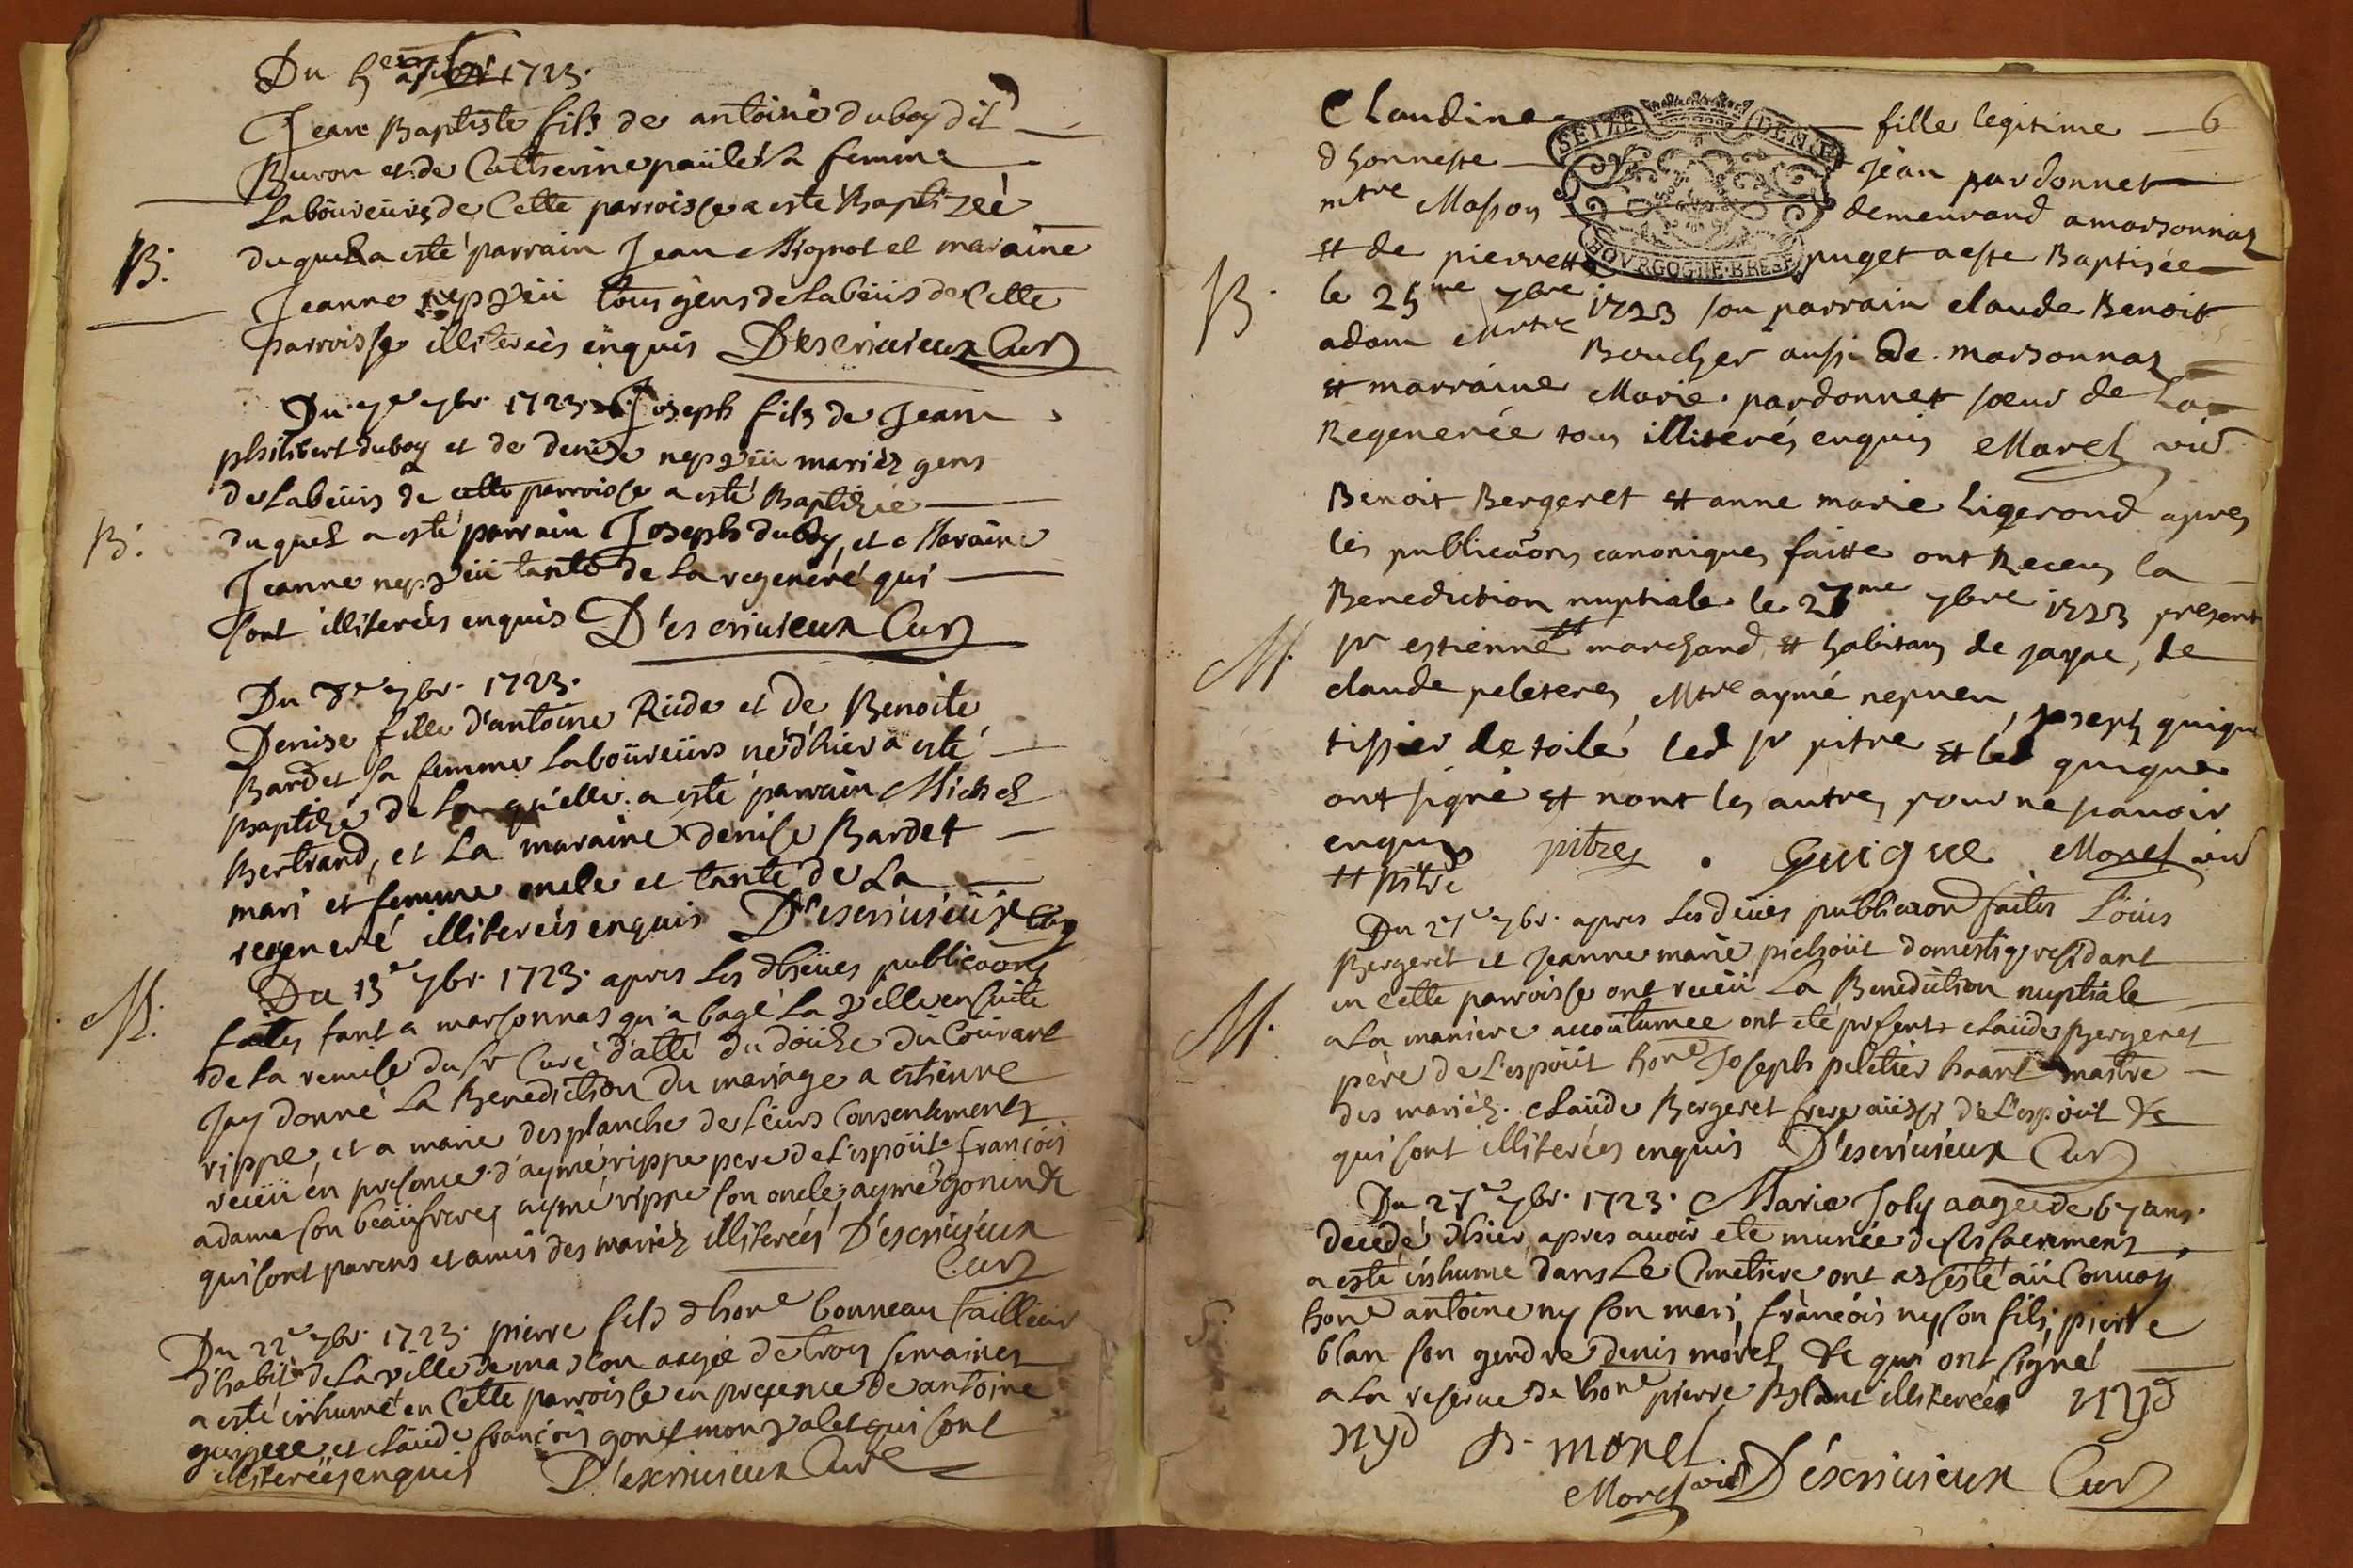 Du 5e 7br 1723.
Jean Baptiste fils de antoine duboy dit
Buron et de Catherine paiile sa femme
Laboureurs de Cette parroisse a esté Baptizéé
B.
duquel a esté parrain Jean Mignot et maraine
Jeanne nepveü tous gens de Labeüs de Cette
parroisse illiterées enquis D'escrivieux Curé
Du 7e 7br. 1723. Joseph fils de Jean
philibert duboy et de denise nepveü mariéz gens
de Labeüs de cette parroisse a esté Baptizée
B.
duquel a esté parrain Joseph duboy, et Maraine
Jeanne nepveü tante de la regeneré qui
sont illiterées enquis D'escrivieux Curé
Du 8e 7br. 1723.
Denise fille d'antoine Rüde et de Benoite
Bardet sa femme Laboüreürs né d'hier a esté
baptizé de La quelle a esté parrain Michel
Bertrand, et La maraine denise Bardet
mari et femme oncle et tante de La
regeneré illiterées enquis D'escrivieüx Curé
M.
Du 13e 7br. 1723. apres Les dheües publicaons
faites tant a marsonnas qu'a bagé La ville ensuite
de La remise du sr Curé d'atté du doüze du Courant
Jay donné La Benediction du mariage a estienne
rippe, et a marie desplanche de Leurs Consentements
receü en presence d'aymé rippe pere de L'espoüt françois
adama son beaüfrere, aymé rippe son oncle, aymé gonin &c
qui sont parens et amis des mariéz illiterées D'escrivieux
Curé
Du 22e 7br. 1723. pierre fils d'hone bonneau tailleur
d'habit de La ville de mascon aagée de trois semaines
a esté inhumé en Cette parroisse en presence de antoine
et claude françois gonet mon valet qui sont
illiterées enquis D'escrivieux Curé
6
Claudine fille legitime
SEIZE DENIE
d honneste Jean pardonnet
mtre Masson demeurand a marsonnaz
et de pierrette puget a este Baptisée
BOVRGOGNE·BRESE
B
le 25me 7bre 1723 son parrain claude Benoit
adam Mtre Boucher aussi de marsonnaz
et marraine Marie pardonnet soeur de la
Regenerée tous illiterés enquis Morel vic
Benoit Bergeret et anne marie Ligerond apres
les publicaons canoniques faitte ont Receu la
Benediction nuptiale le 27me 7bre 1723 present
M.
sr estienne marchand et habitant de jayac, de
claude peleteres, Mtre aymé nepveu, joseph guigue
tissier de toile led sr pitre et led guigue
ont signé et nont les autres pour ne scavoir
enquis pitrez . Guigue Morel vic
++ pitre
Du 27e 7br. apres Les deües publicaon faites Loüis
Bergeret et Jeanne marie pichoüt domestiq residant
en Cette parroisse ont receü La Benediction nuptiale
M.
a La maniere accoutumee ont eté presents claüde Bergeret
père de L'espoüt hone Joseph peletier maitre
des mariéz. claüde Bergeret frere aüssy de L'espoüt &c
qui sont illiterées enquis D'escrivieux Curé
Du 27e 7br. 1723. Marie Joly aagee de 67 ans
decedé d'hier apres avoir eté munée de ses sacrement,
a esté inhume dans Le Cimetiere ont assisté aü Convoy
hone antoine ny son mari, françois ny son fils, pierre
blan son gendre denis morel &c qui ont signé
a La reserve de hone pierre Blanc illiterées nyd
nyd D. morel
Morel vic D'éscrivieux Curé